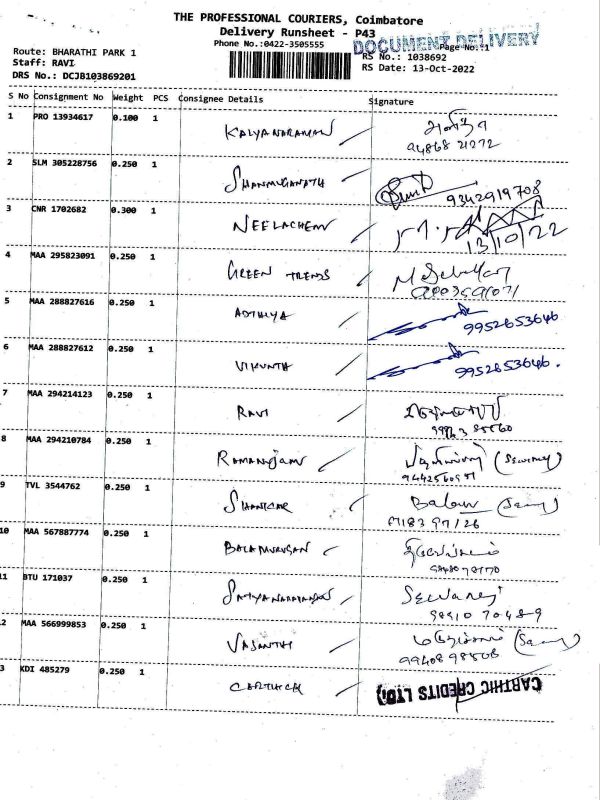 THE PROFESSIONAL COURIERS, Coimbatore
Delivery Runsheet - P43
Phone No.:0422-3505555
DOCUMENT DELIVERY
Page No.:1
Route: BHARATHI PARK 1
RS No.: 1038692
Staff: RAVI
RS Date: 13-Oct-2022
DRS No.: DCJB103869201
S No Consignment No Weight PCS Consignee Details Signature
1 PRO 13934617 0.100 1 KALYANARAMAN
94868 21272
2 SLM 305228756 0.250 1 SHANMUGANATH
9342919708
3 CNR 1702682 0.300 1 NEELACHEM
13/10/22
4 MAA 295823091 0.250 1 GREEN TRENDS
5 MAA 288827616 0.250 1 ADTHIYA
9952653646
6 MAA 288827612 0.250 1 VIKUNTH
9952653646.
7 MAA 294214123 0.250 1 RAVI
8 MAA 294210784 0.250 1 RAMANUJAM
9 TVL 3544762 0.250 1 SHANKAR Balaw
10 MAA 567887774 0.250 1 BALAMURUGAN
11 BTU 171037 0.250 1 SATYANARAYANAN
98910 70489
2 MAA 566999853 0.250 1 VASANTHI
99408 98508
3 KDI 485279 0.250 1 CARTHICK CARTHIC CREDITS LTD.